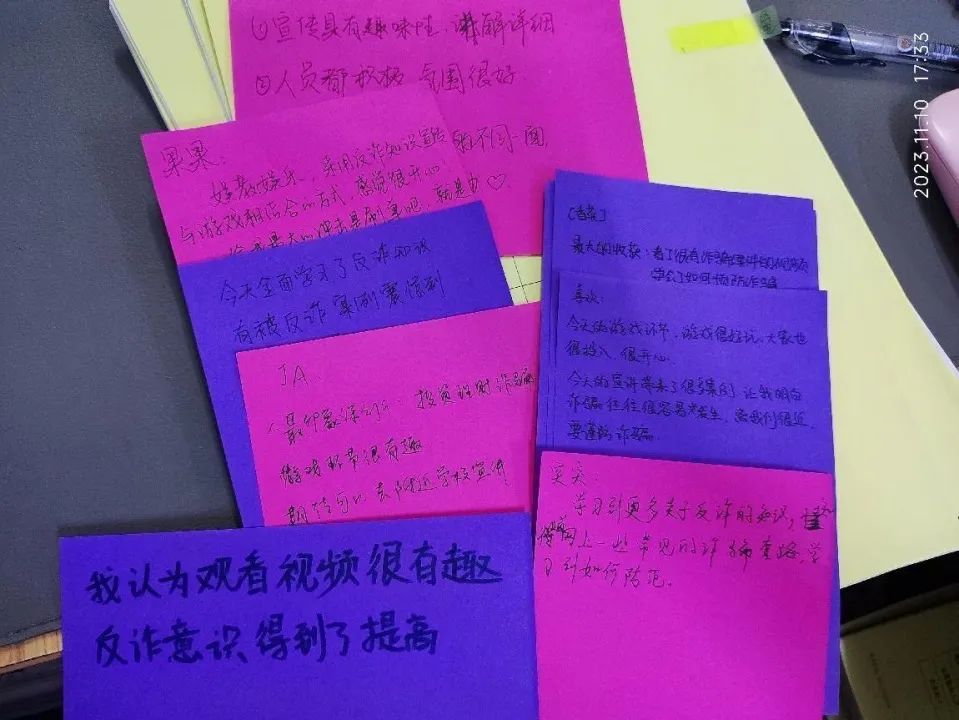 ①宣传具有趣味性,讲解详细
②人员都积极 氛围很好
的不同一面,
果果:
娱乐,采用反诈知识宣传
与游戏相结合的方式,感觉很开心
就是由♡.
今天全面学习了反诈知识
有被反诈案例震惊到
JA.
投资理财诈骗
游戏环节很有趣
期待可以去附近学校宣传
我认为观看视频很有趣
反诈意识得到了提高
[香菜]
最大的收获:看了很有诈骗案件的视频
学会了如何预防诈骗
今天的游戏环节,游戏很好玩,大家也
很投入,很开心.
今天的宣讲带来了很多案例,让我明白
诈骗往往很容易发生,离我们很近,
要谨防诈骗.
学习到更多关于反诈的知识,
上一些常见的诈骗套路,学
习到如何防范.
2023.11.10 17:33